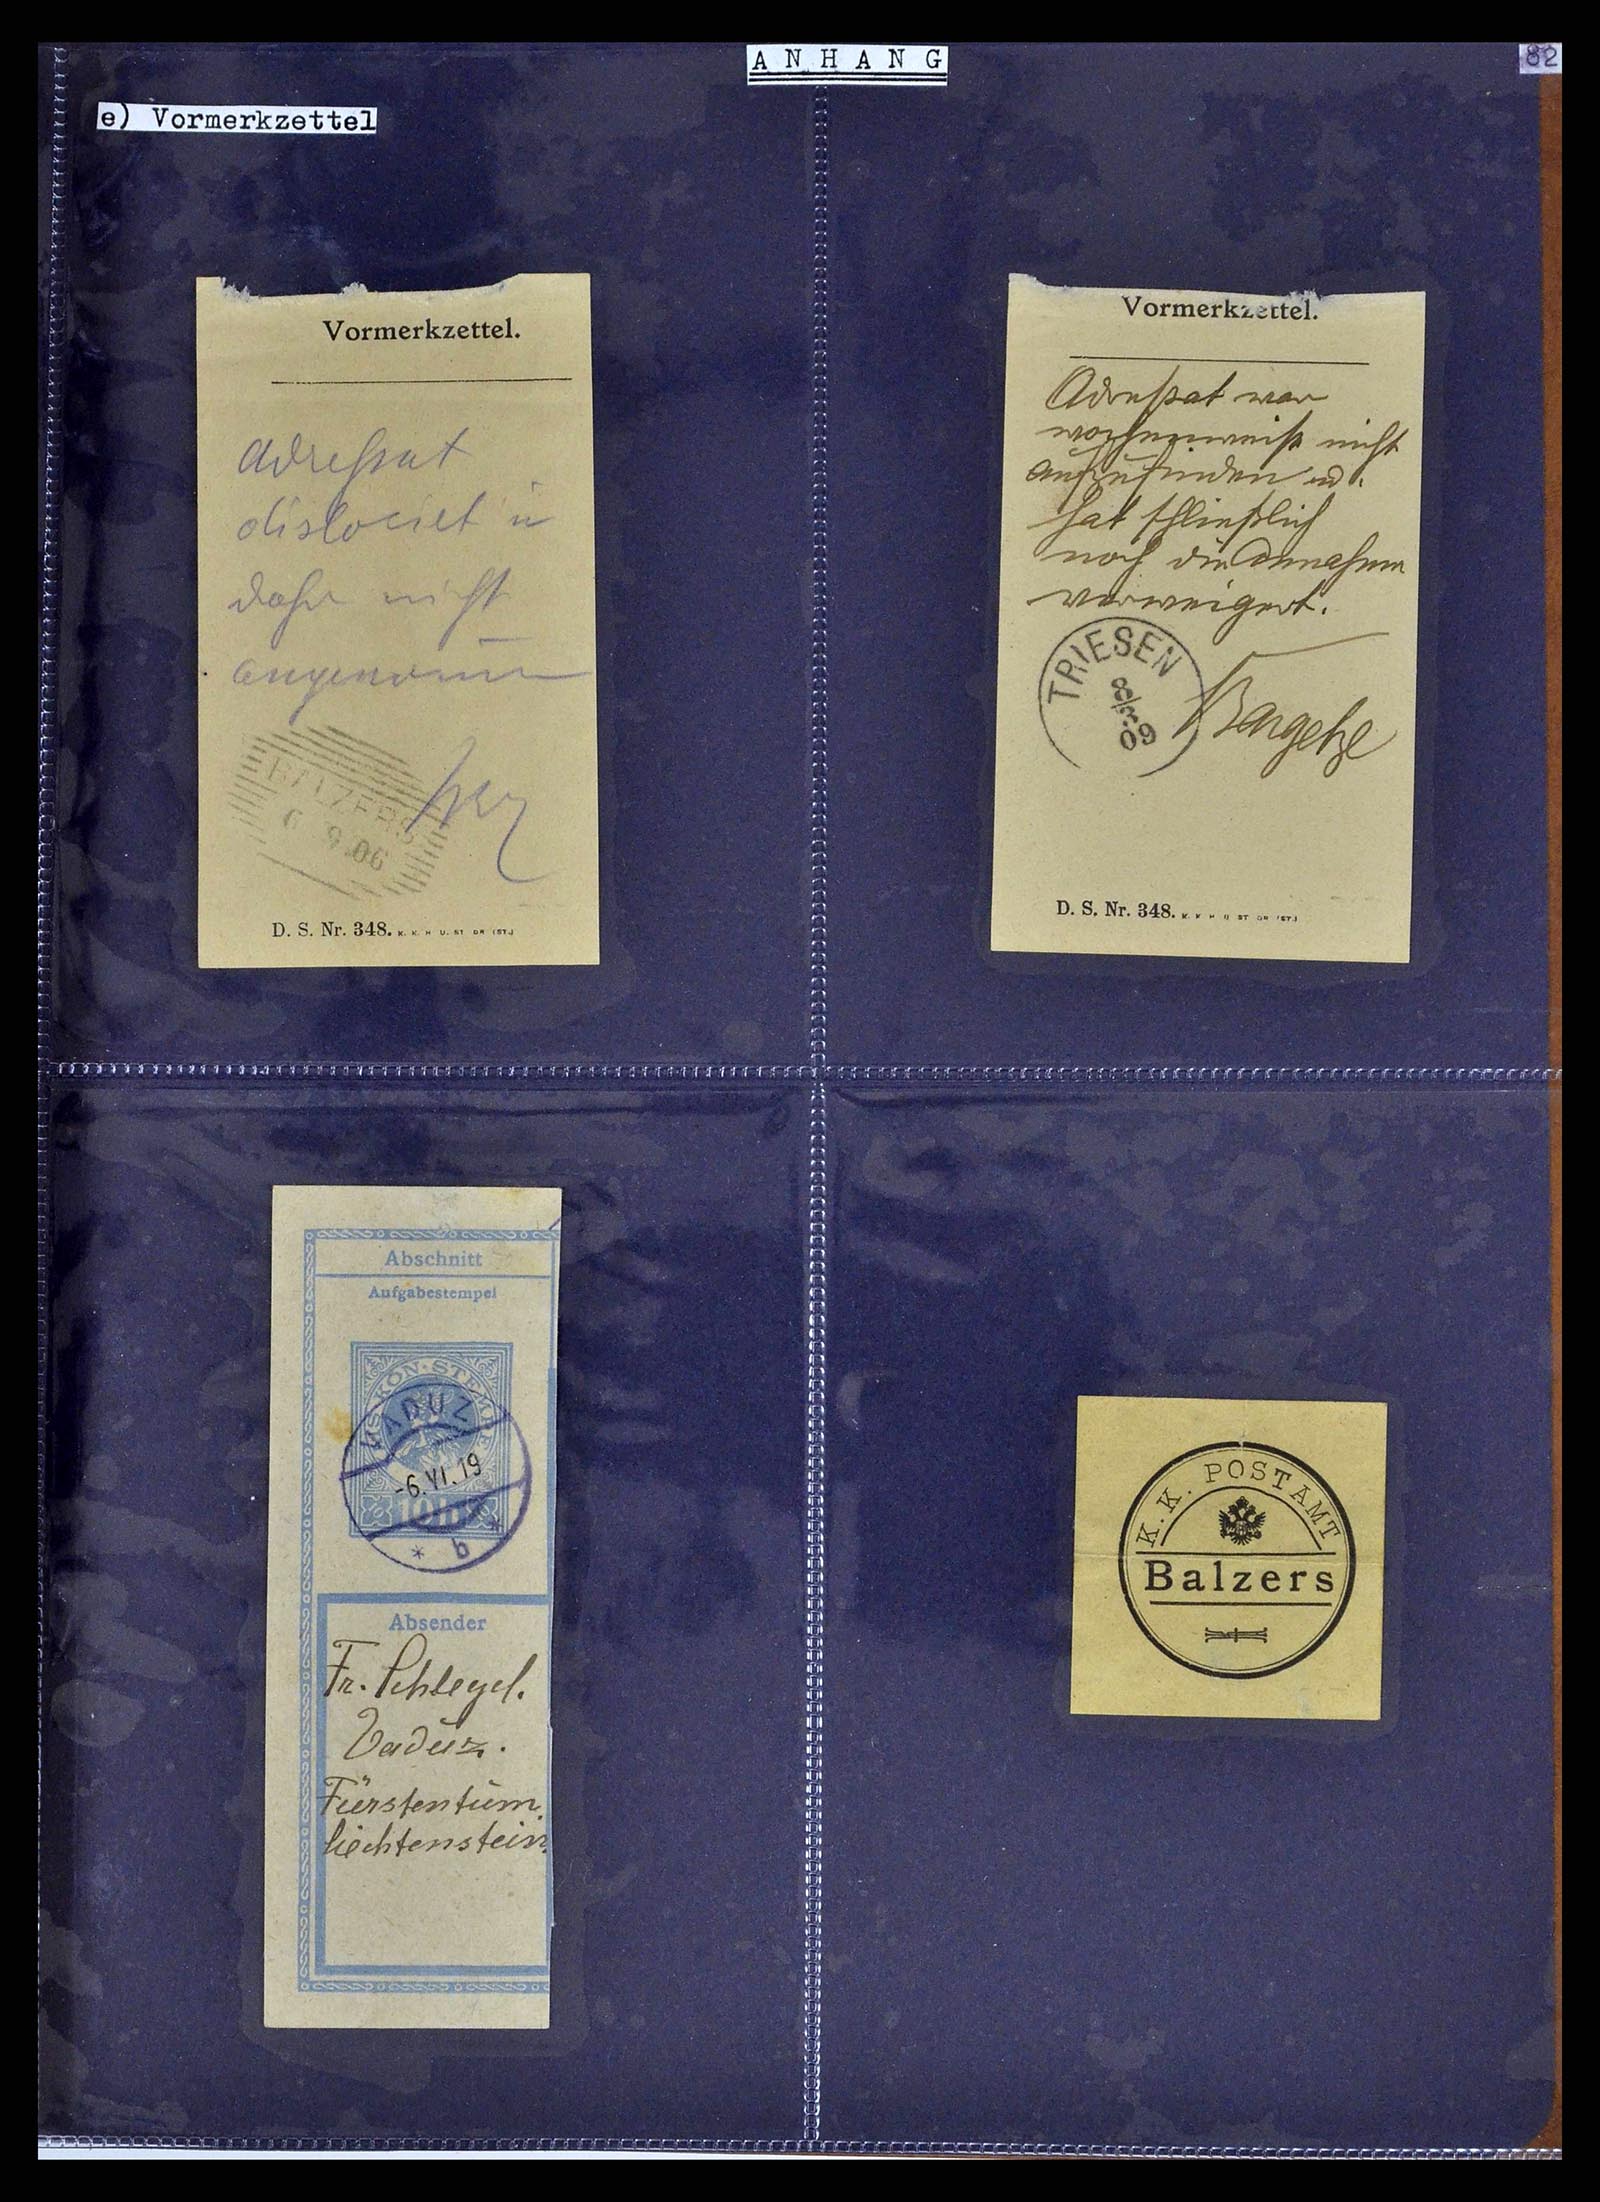 ANHANG
82
e) Vormerkzettel
Vormerkzettel.
Adressat
dislociet u
daher nicht
angenommen
BALZERS
6 9.06
D. S. Nr. 348.
Vormerkzettel.
Adressat war
wochenweise nicht
aufzufinden u.
hat schließlich
noch die Annahme
verweigert.
TRIESEN
8/3 09
Bargetze
D. S. Nr. 348.
Abschnitt
Aufgabestempel
VADUZ
-6.VI.19
10 h
* b *
Absender
Fr. Schlegel.
Vaduz.
Fürstentum
Liechtenstein.
K. K. POSTAMT
Balzers